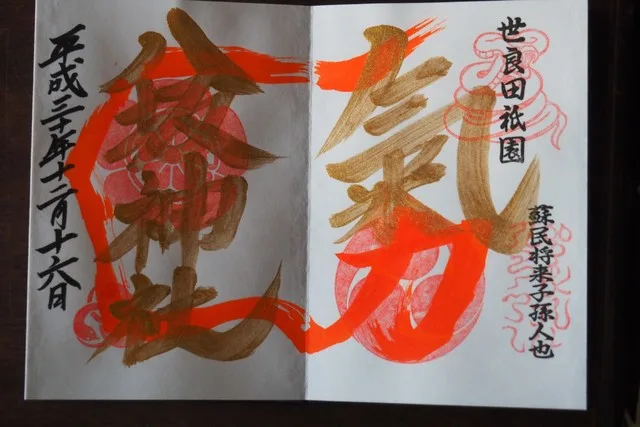 世良田祇園
蘇民将来子孫人也
氣力
八坂神社
平成三十年十二月十六日